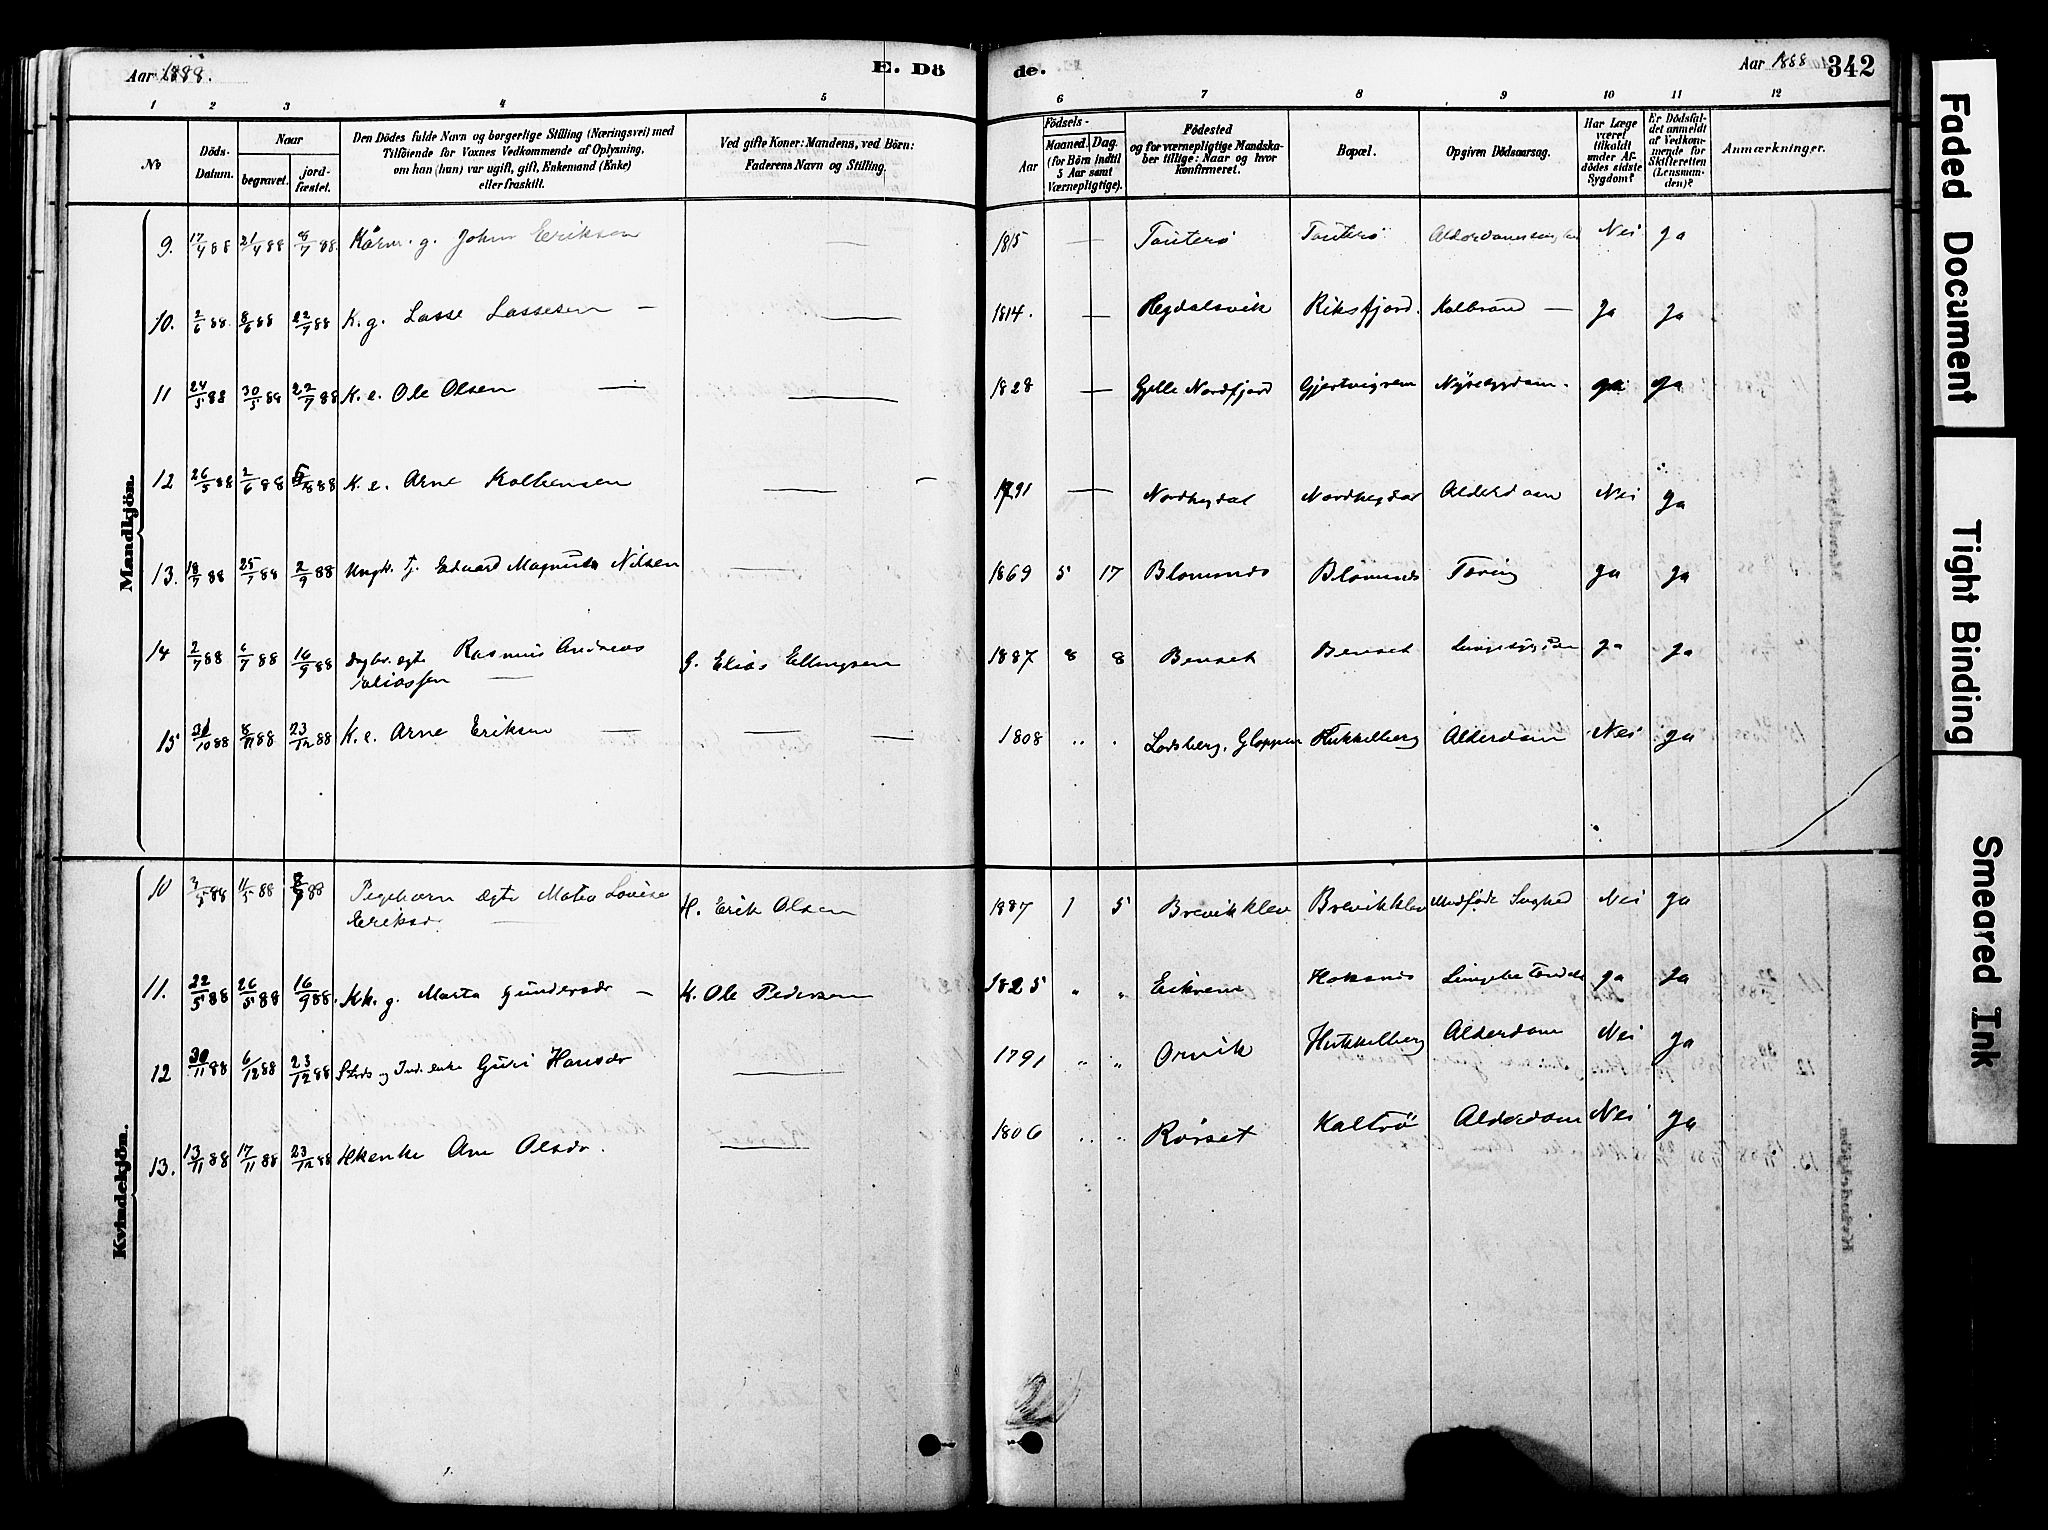 Aar 1888.
E. Dö
de.
Aar 1888
342
1 2 3 4 5 6 7 8 9 10 11 12
No
Döds-Datum.
Naar
begravet.
jord-fæstet.
Den Dödes fulde Navn og borgerlige Stilling (Næringsvei) med
Tilföiende for Voxnes Vedkommende af Oplysning,
om han (hun) var ugift, gift, Enkemand (Enke)
eller fraskilt.
Ved gifte Koner: Mandens, ved Börn:
Faderens Navn og Stilling.
Födsels-
Aar
Maaned. Dag.
(for Börn indtil
5 Aar samt
Værnepligtige).
Födested
og for værnepligtige Mandska-
ber tillige: Naar og hvor
konfirmeret.
Bopæl.
Opgiven Dödsaarsag.
Har Læge
været
tilkaldt
under Af-
dödes sidste
Sygdom?
Er Dödsfal-
det anmeldt
af Vedkom-
mende for
Skifteretten
(Lensman-
den)?
Anmærkninger.
Mandkjön.
9. 17/4 88 21/4 88 8/7 88. Kårm. g. John Eriksen — 1815 — Tauterö Tauterö Nei Ja
10. 2/6 88. 8/6 88 22/7 88 K. g. Lasse Lassesen — — 1814. — Riksfjord. Koldbrand — Ja Ja
11 24/5 88 30/5 88 22/7 88 K. e. Ole Olsen — — 1828 — Nordfjord ja Ja
12 26/5 88 2/6 88 88 K. e. Arne — 1791 — Alderdom Nei Ja
13. 18/7 88 25/7 88 2/9 88 Ungk. tj. Edvard Magnus Nilsen — 1869 5 17 Blomsnes Blomsnes Tæring Ja Ja
14 2/7 88 6/7 88 16/9 88 ægte Rasmus Andreas
Eliassen — G. Elias Ellingsen 1887 8 8 Benset Benset Ja Ja
15 31/10 88 8/11 88 23/12 88 K. e. Arne Eriksen — — — 1808 " " Gloppen Hukkelberg Alderdom Nei Ja
Kvindekjön.
10 3/5 88 11/5 88 88 Pigebarn ægte Mata Lovise
Eriksd. — H. Erik Olsen 1887 1 5 Brevikklev Brevikklev Medfødt Svaghed Nei Ja
11. 22/5 88 26/5 88 16/9 88. Kk. g. Marta Gundersdr — K. Ole Pedersen 1825 " " Eikrem Hoksnes Ja Ja
12 30/11 88 6/12 88 23/12 88 enke Guri Hansdr — 1791 " " Orvik Hukkelberg Alderdom Nei Ja
13. 13/11 88 17/11 88 23/12 88 Olsdr. — 1806 " " Rörset Kaltrö Alderdom Nei Ja
Faded Document
Tight Binding
Smeared Ink